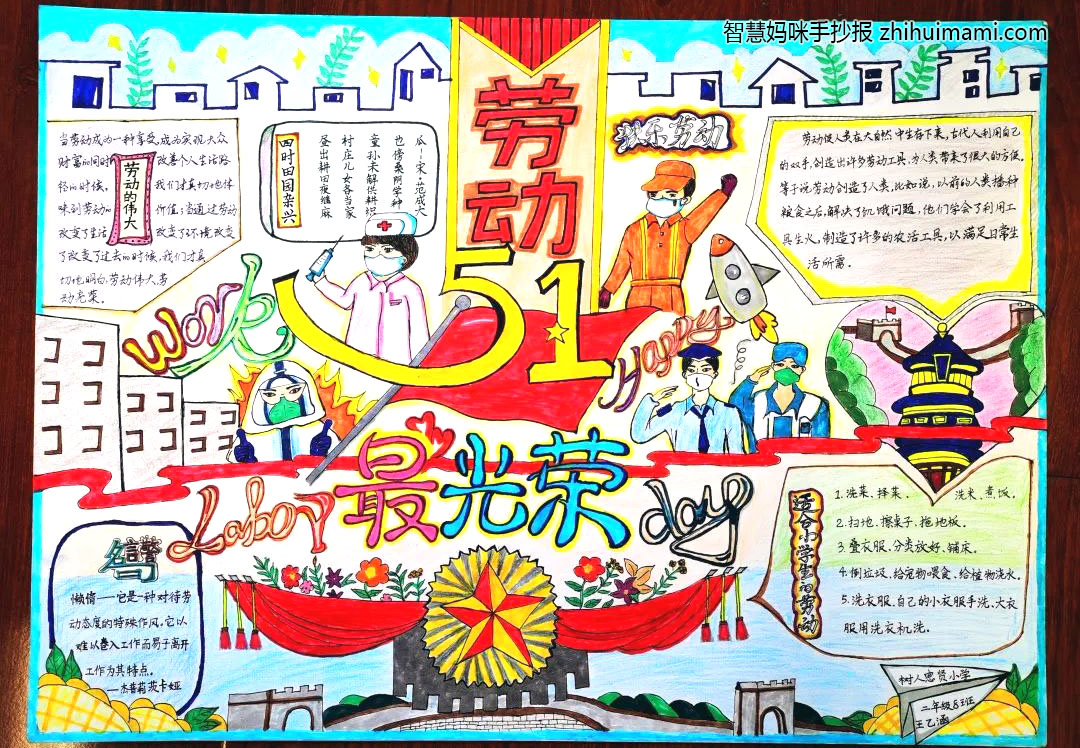 智慧妈咪手抄报 zhihuimami.com
劳动
51
快乐劳动
当劳动成为一种享受,成为实现大众
财富的同时
改善个人生活路
径的时候,
我们才真切地体
味到劳动的
价值;当通过劳动
改变了生活
改变了环境改变
了改变了过去的时候,我们才真
切地明白,劳动伟大,劳
动光荣。
劳动的伟大
四时田园杂兴
瓜 宋·范成大
也傍桑阴学种
童孙未解供耕织
村庄儿女各当家
昼出耕田夜绩麻
劳动使人类在大自然中生存下来,古代人利用自己
的双手,创造出许多劳动工具,为人类带来了很大的方便。
等于说劳动创造了人类,比如说,以前的人类播种
粮食之后,解决了饥饿问题,他们学会了利用工
具生火,制造了许多的农活工具,以满足日常生
活所需。
Work
Happy
最光荣
Labor
day
名言警句
懒惰——它是一种对待劳
动态度的特殊作风。它以
难以卷入工作而易于离开
工作为其特点。
—杰普莉茨卡娅
适合小学生的劳动
1.洗菜、择菜、洗米、煮饭。
2.扫地、擦桌子、拖地板。
3.叠衣服、分类放好、铺床。
4.倒垃圾、给宠物喂食、给植物浇水。
5.洗衣服、自己的小衣服手洗、大衣
服用洗衣机洗。
树人忠贤小学
二年级8班
王乙涵